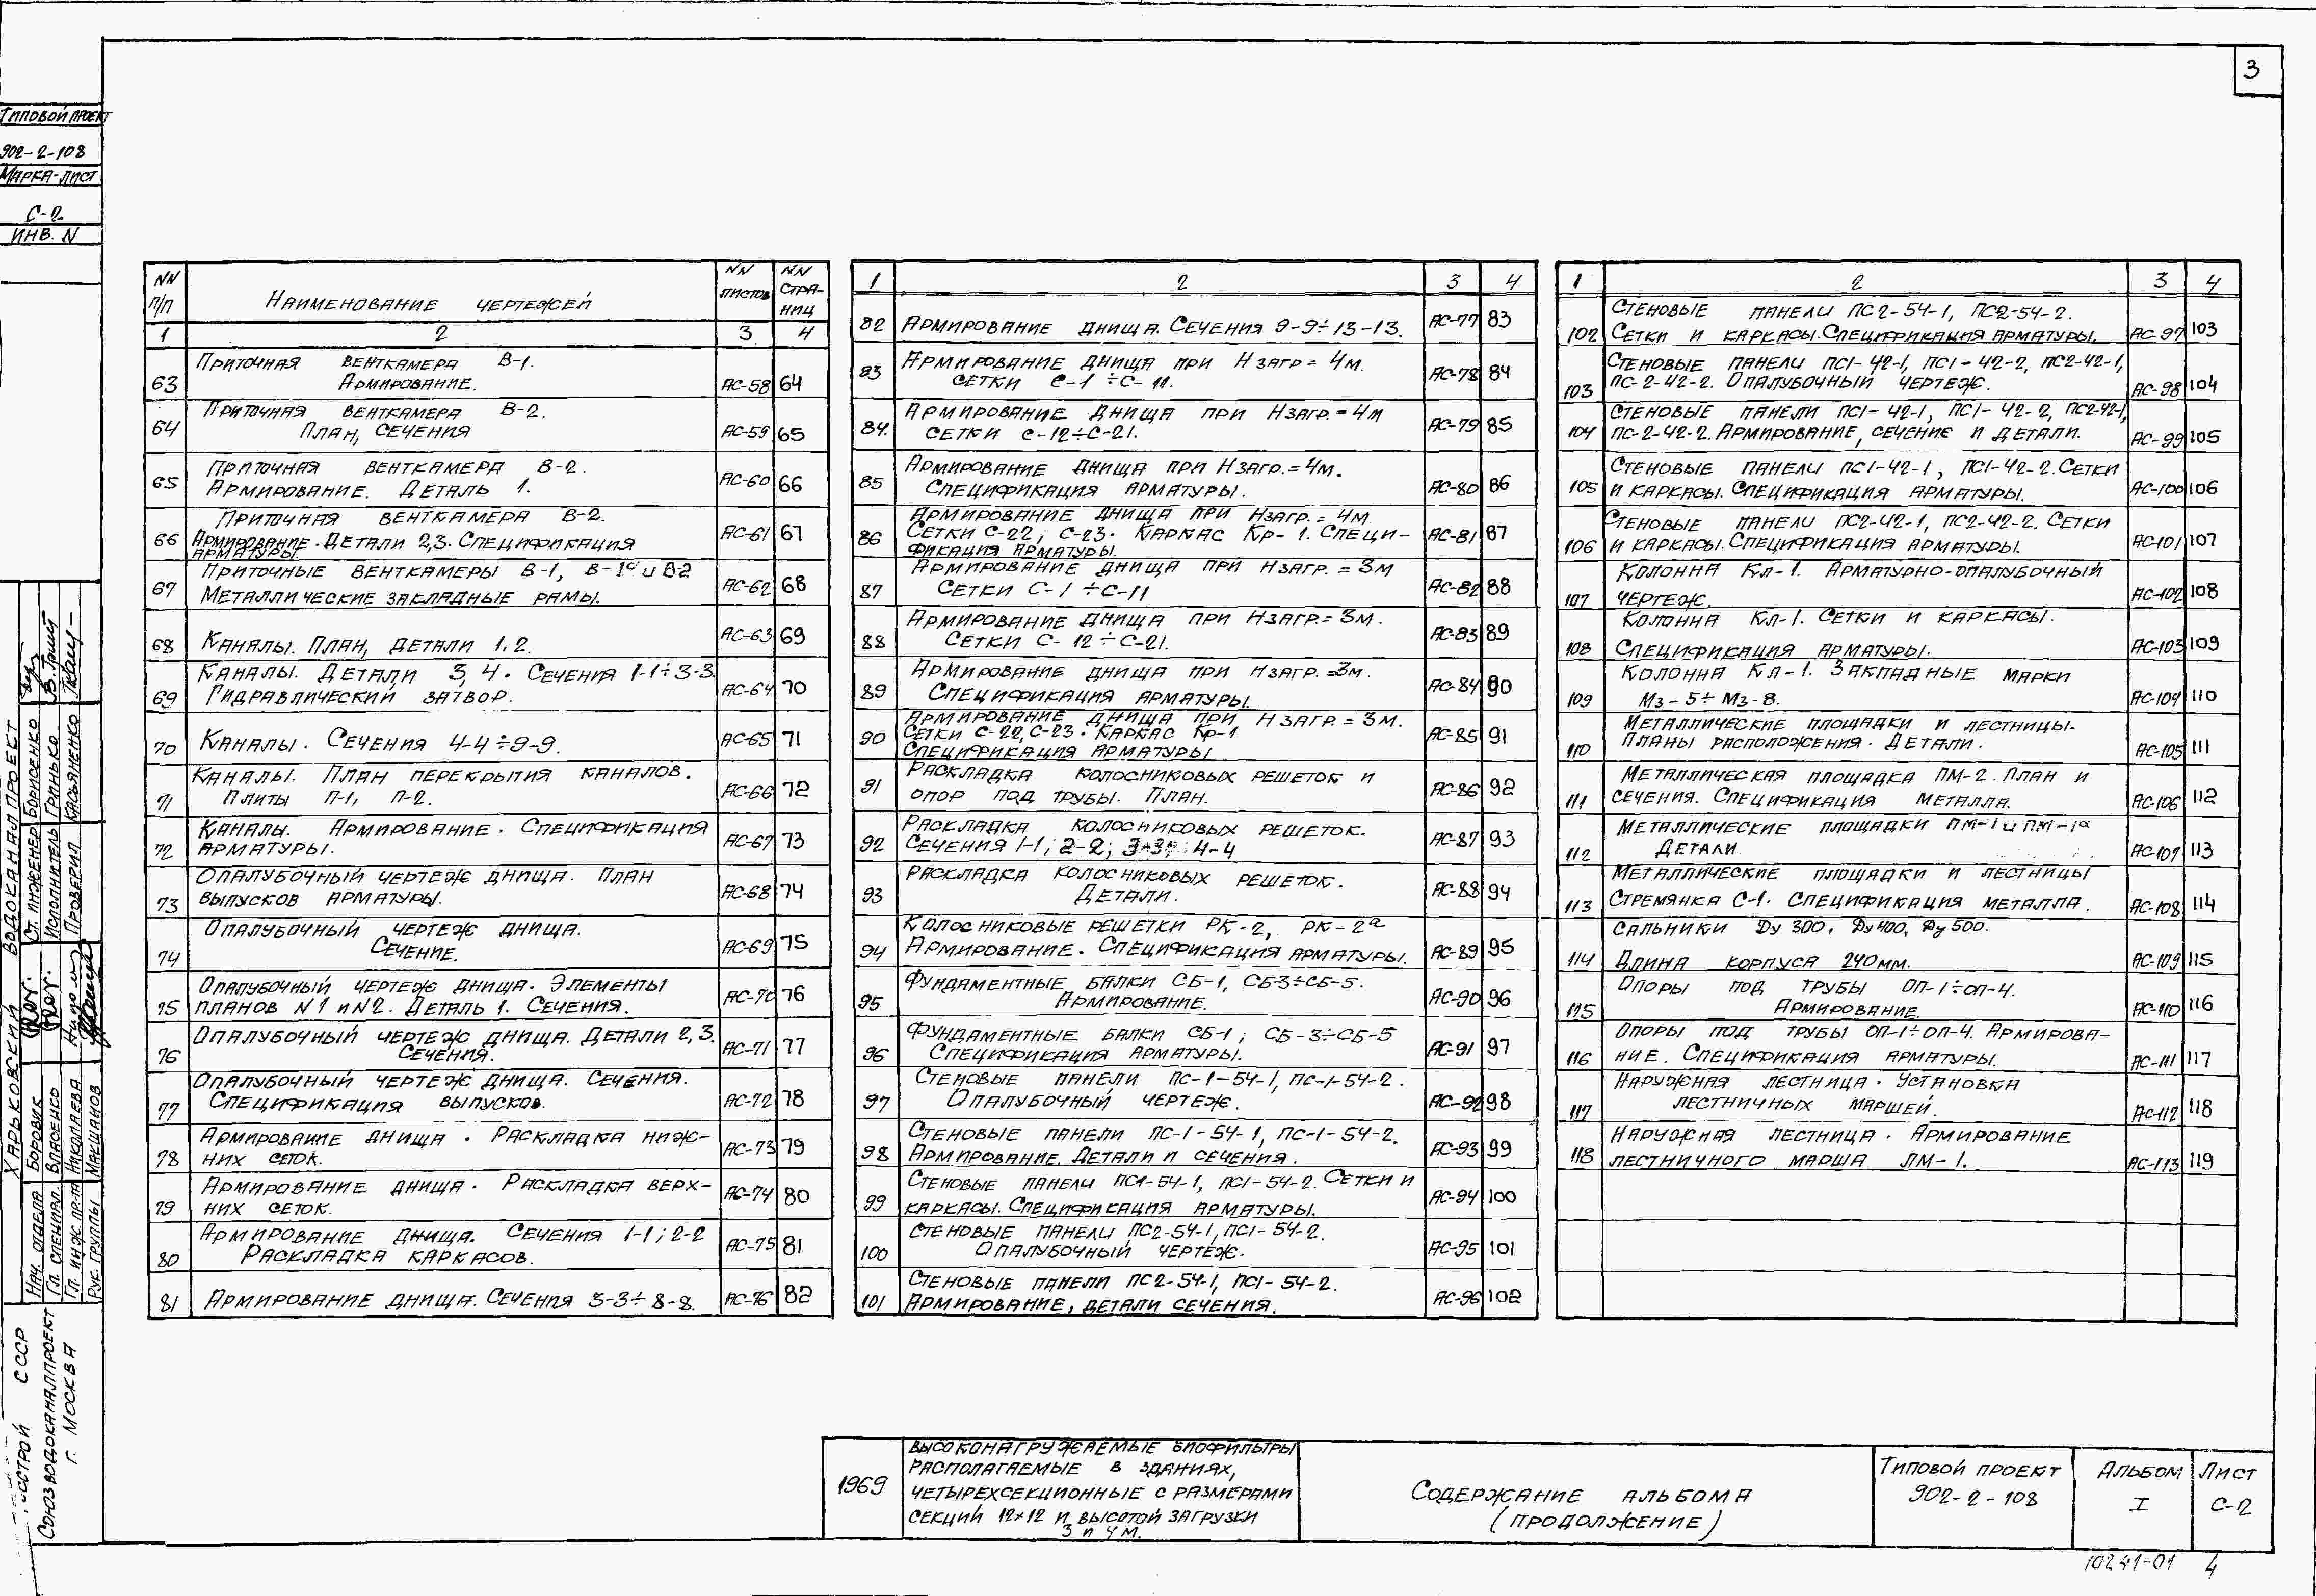 3
Типовой проект
902-2-108
Марка-лист
С-2
Инв. N
NN п/п
Наименование чертежей
NN листов
NN страниц
1 2 3 4
Приточная венткамера В-1.
63 Армирование. АС-58 64
Приточная венткамера В-2.
64 План, сечения АС-59 65
Приточная венткамера В-2.
65 Армирование. Деталь 1. АС-60 66
Приточная венткамера В-2.
66 Армирование. Детали 2,3. Спецификация АС-61 67
арматуры.
Приточные венткамеры В-1, В-1а и В-2
67 Металлические закладные рамы. АС-62 68
68 Каналы. План, детали 1,2. АС-63 69
Каналы. Детали 3,4. Сечения 1-1÷3-3.
69 Гидравлический затвор. АС-64 70
70 Каналы. Сечения 4-4÷9-9. АС-65 71
Каналы. План перекрытия каналов.
71 Плиты П-1, П-2. АС-66 72
Каналы. Армирование. Спецификация
72 арматуры. АС-67 73
Опалубочный чертеж днища. План
73 выпусков арматуры. АС-68 74
Опалубочный чертеж днища.
74 Сечение. АС-69 75
Опалубочный чертеж днища. Элементы
75 планов N1 и N2. Деталь 1. Сечения. АС-70 76
Опалубочный чертеж днища. Детали 2,3.
76 Сечения. АС-71 77
Опалубочный чертеж днища. Сечения.
77 Спецификация выпусков. АС-72 78
Армирование днища. Раскладка ниж-
78 них сеток. АС-73 79
Армирование днища. Раскладка верх-
79 них сеток. АС-74 80
Армирование днища. Сечения 1-1; 2-2
80 Раскладка каркасов. АС-75 81
81 Армирование днища. Сечения 3-3÷8-8. АС-76 82
1 2 3 4
82 Армирование днища. Сечения 9-9÷13-13. АС-77 83
Армирование днища при Н загр = 4м.
83 сетки С-1÷С-11. АС-78 84
Армирование днища при Нзагр.=4м
84. сетки С-12÷С-21. АС-79 85
Армирование днища при Нзагр.=4м.
85 Спецификация арматуры. АС-80 86
Армирование днища при Нзагр.=4м
86 Сетки С-22, С-23. Каркас Кр-1. Специ- АС-81 87
фикация арматуры.
Армирование днища при Нзагр.=3м
87 Сетки С-1÷С-11 АС-82 88
Армирование днища при Нзагр.=3м.
88 Сетки С-12÷С-21. АС-83 89
Армирование днища при Нзагр.=3м.
89 Спецификация арматуры. АС-84 90
Армирование днища при Н загр.=3м.
90 Сетки С-22, С-23. Каркас Кр-1 АС-85 91
Спецификация арматуры
Раскладка колосниковых решеток и
91 опор под трубы. План. АС-86 92
Раскладка колосниковых решеток.
92 Сечения 1-1; 2-2; 3-3; 4-4 АС-87 93
Раскладка колосниковых решеток.
93 Детали. АС-88 94
Колосниковые решетки РК-2, РК-2а
94 Армирование. Спецификация арматуры. АС-89 95
Фундаментные балки СБ-1, СБ-3÷СБ-5.
95 Армирование. АС-90 96
Фундаментные балки СБ-1; СБ-3÷СБ-5
96 Спецификация арматуры. АС-91 97
Стеновые панели ПС-1-54-1, ПС-1-54-2.
97 Опалубочный чертеж. АС-92 98
Стеновые панели ПС-1-54-1, ПС-1-54-2.
98 Армирование. Детали и сечения. АС-93 99
Стеновые панели ПС1-54-1, ПС1-54-2. Сетки и
99 каркасы. Спецификация арматуры. АС-94 100
Стеновые панели ПС2-54-1, ПС1-54-2.
100 Опалубочный чертеж. АС-95 101
Стеновые панели ПС2-54-1, ПС1-54-2.
101 Армирование, детали сечения. АС-96 102
1 2 3 4
Стеновые панели ПС2-54-1, ПС2-54-2.
102 Сетки и каркасы. Спецификация арматуры. АС-97 103
Стеновые панели ПС1-42-1, ПС1-42-2, ПС2-42-1,
103 ПС-2-42-2. Опалубочный чертеж. АС-98 104
Стеновые панели ПС1-42-1, ПС1-42-2, ПС2-42-1,
104 ПС-2-42-2. Армирование, сечение и детали. АС-99 105
Стеновые панели ПС1-42-1, ПС1-42-2. Сетки
105 и каркасы. Спецификация арматуры. АС-100 106
Стеновые панели ПС2-42-1, ПС2-42-2. Сетки
106 и каркасы. Спецификация арматуры. АС-101 107
Колонна Кл-1. Арматурно-опалубочный
107 чертеж. АС-102 108
Колонна Кл-1. Сетки и каркасы.
108 Спецификация арматуры. АС-103 109
Колонна Кл-1. Закладные марки
109 Мз-5÷Мз-8. АС-104 110
Металлические площадки и лестницы.
110 Планы расположения. Детали. АС-105 111
Металлическая площадка ПМ-2. План и
111 сечения. Спецификация металла. АС-106 112
Металлические площадки ПМ-1 и ПМ-1а
112 Детали. АС-107 113
Металлические площадки и лестницы
113 Стремянка С-1. Спецификация металла. АС-108 114
Сальники Ду 300, Ду 400, Ду 500.
114 Длина корпуса 240мм. АС-109 115
Опоры под трубы ОП-1÷ОП-4.
115 Армирование. АС-110 116
Опоры под трубы ОП-1÷ОП-4. Армирова-
116 ние. Спецификация арматуры. АС-111 117
Наружная лестница. Установка
117 лестничных маршей. АС-112 118
Наружная лестница. Армирование
118 лестничного марша ЛМ-1. АС-113 119
Харьковский Водоканалпроект
Нач. отдела Боровик
Гл. специал. Власенко
Гл. инж. пр-та Николаева
Рук. группы Макшанов
Ст. инженер Борисенко
Исполнитель Гринько
Проверил Касьяненко
СССР
Союзводоканалпроект
г. Москва
1969
Высоконагружаемые биофильтры
располагаемые в зданиях,
четырехсекционные с размерами
секций 12×12 и высотой загрузки
3 и 4 м.
Содержание альбома
(продолжение)
Типовой проект
902-2-108
Альбом
I
Лист
С-2
10241-01 4